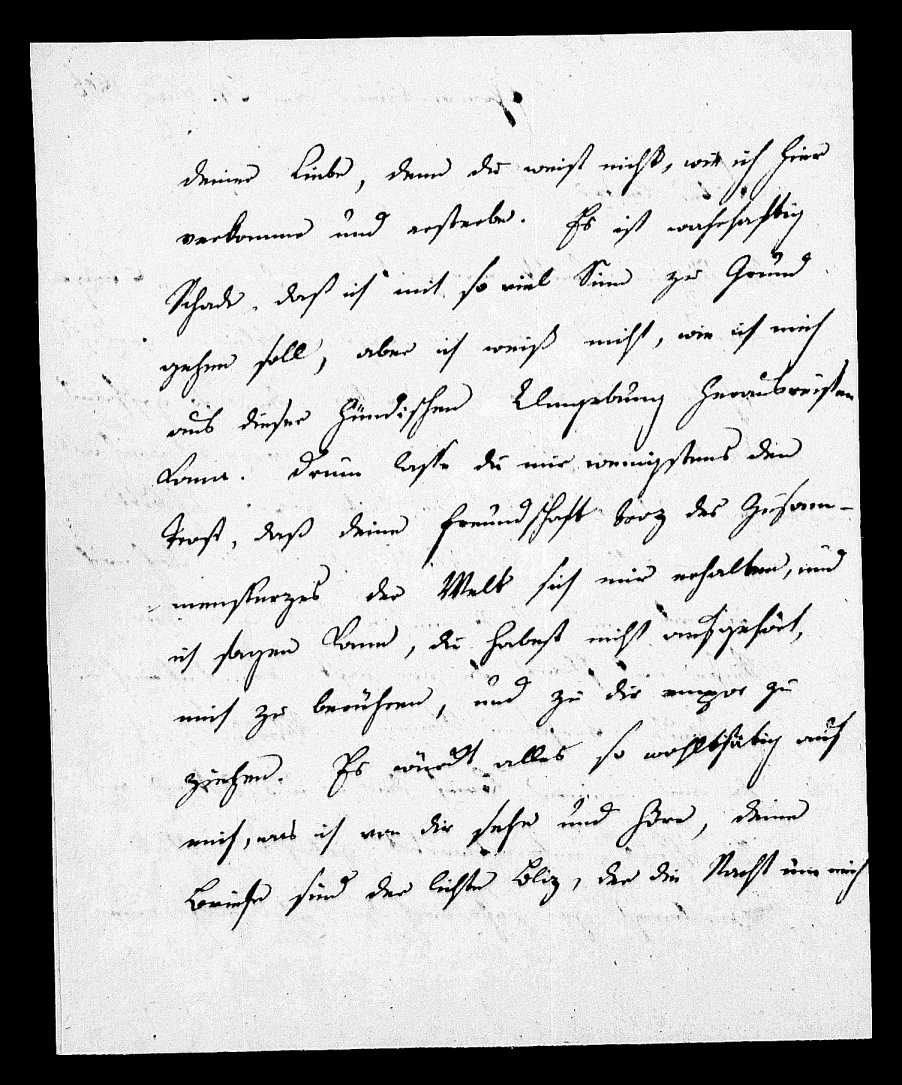 deiner Liebe, denn du weist nicht, wie ich hier
verkomme und ersterbe. Es ist wahrhaftig
Schade, daß ich mit so viel Sinn zu Grund
gehen soll, aber ich weiß nicht, wie ich mich
aus dieser hündischen Umgebung herausreißen
kann. Drum lasse du mir wenigstens den
Trost, daß deine Freundschaft troz des Zusam-
mensturzes der Welt sich mir erhalten, und
ich sagen kann, du habest nicht aufgehört,
mich zu berühren, und zu dir empor zu
ziehen. Es würkt alles so wohlthätig auf
mich, was ich von dir sehe und höre, deine
Briefe sind der lichte Bliz, der die Nacht um mich